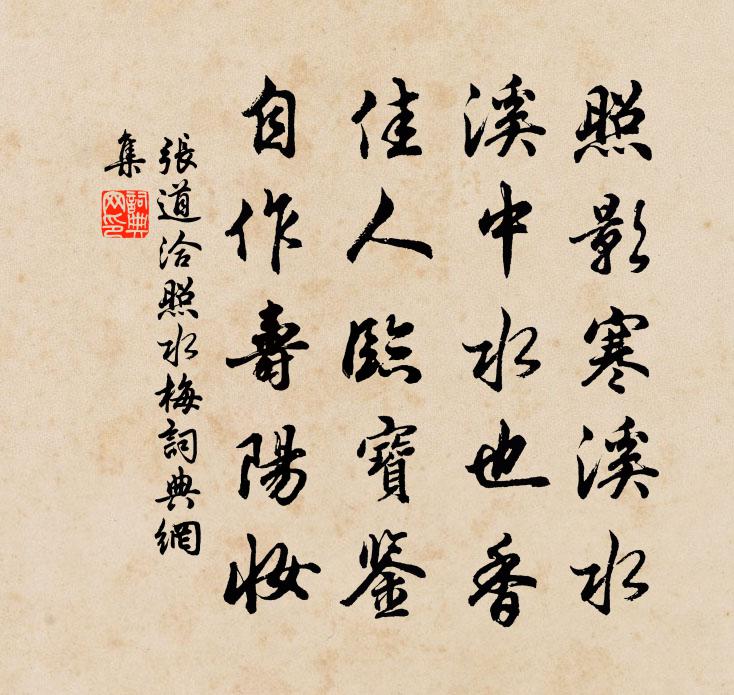 照影寒溪水
溪中水也香
佳人臨寶鑒
自作壽陽妝
張道洽照水梅詞典網
集
詞典
网印